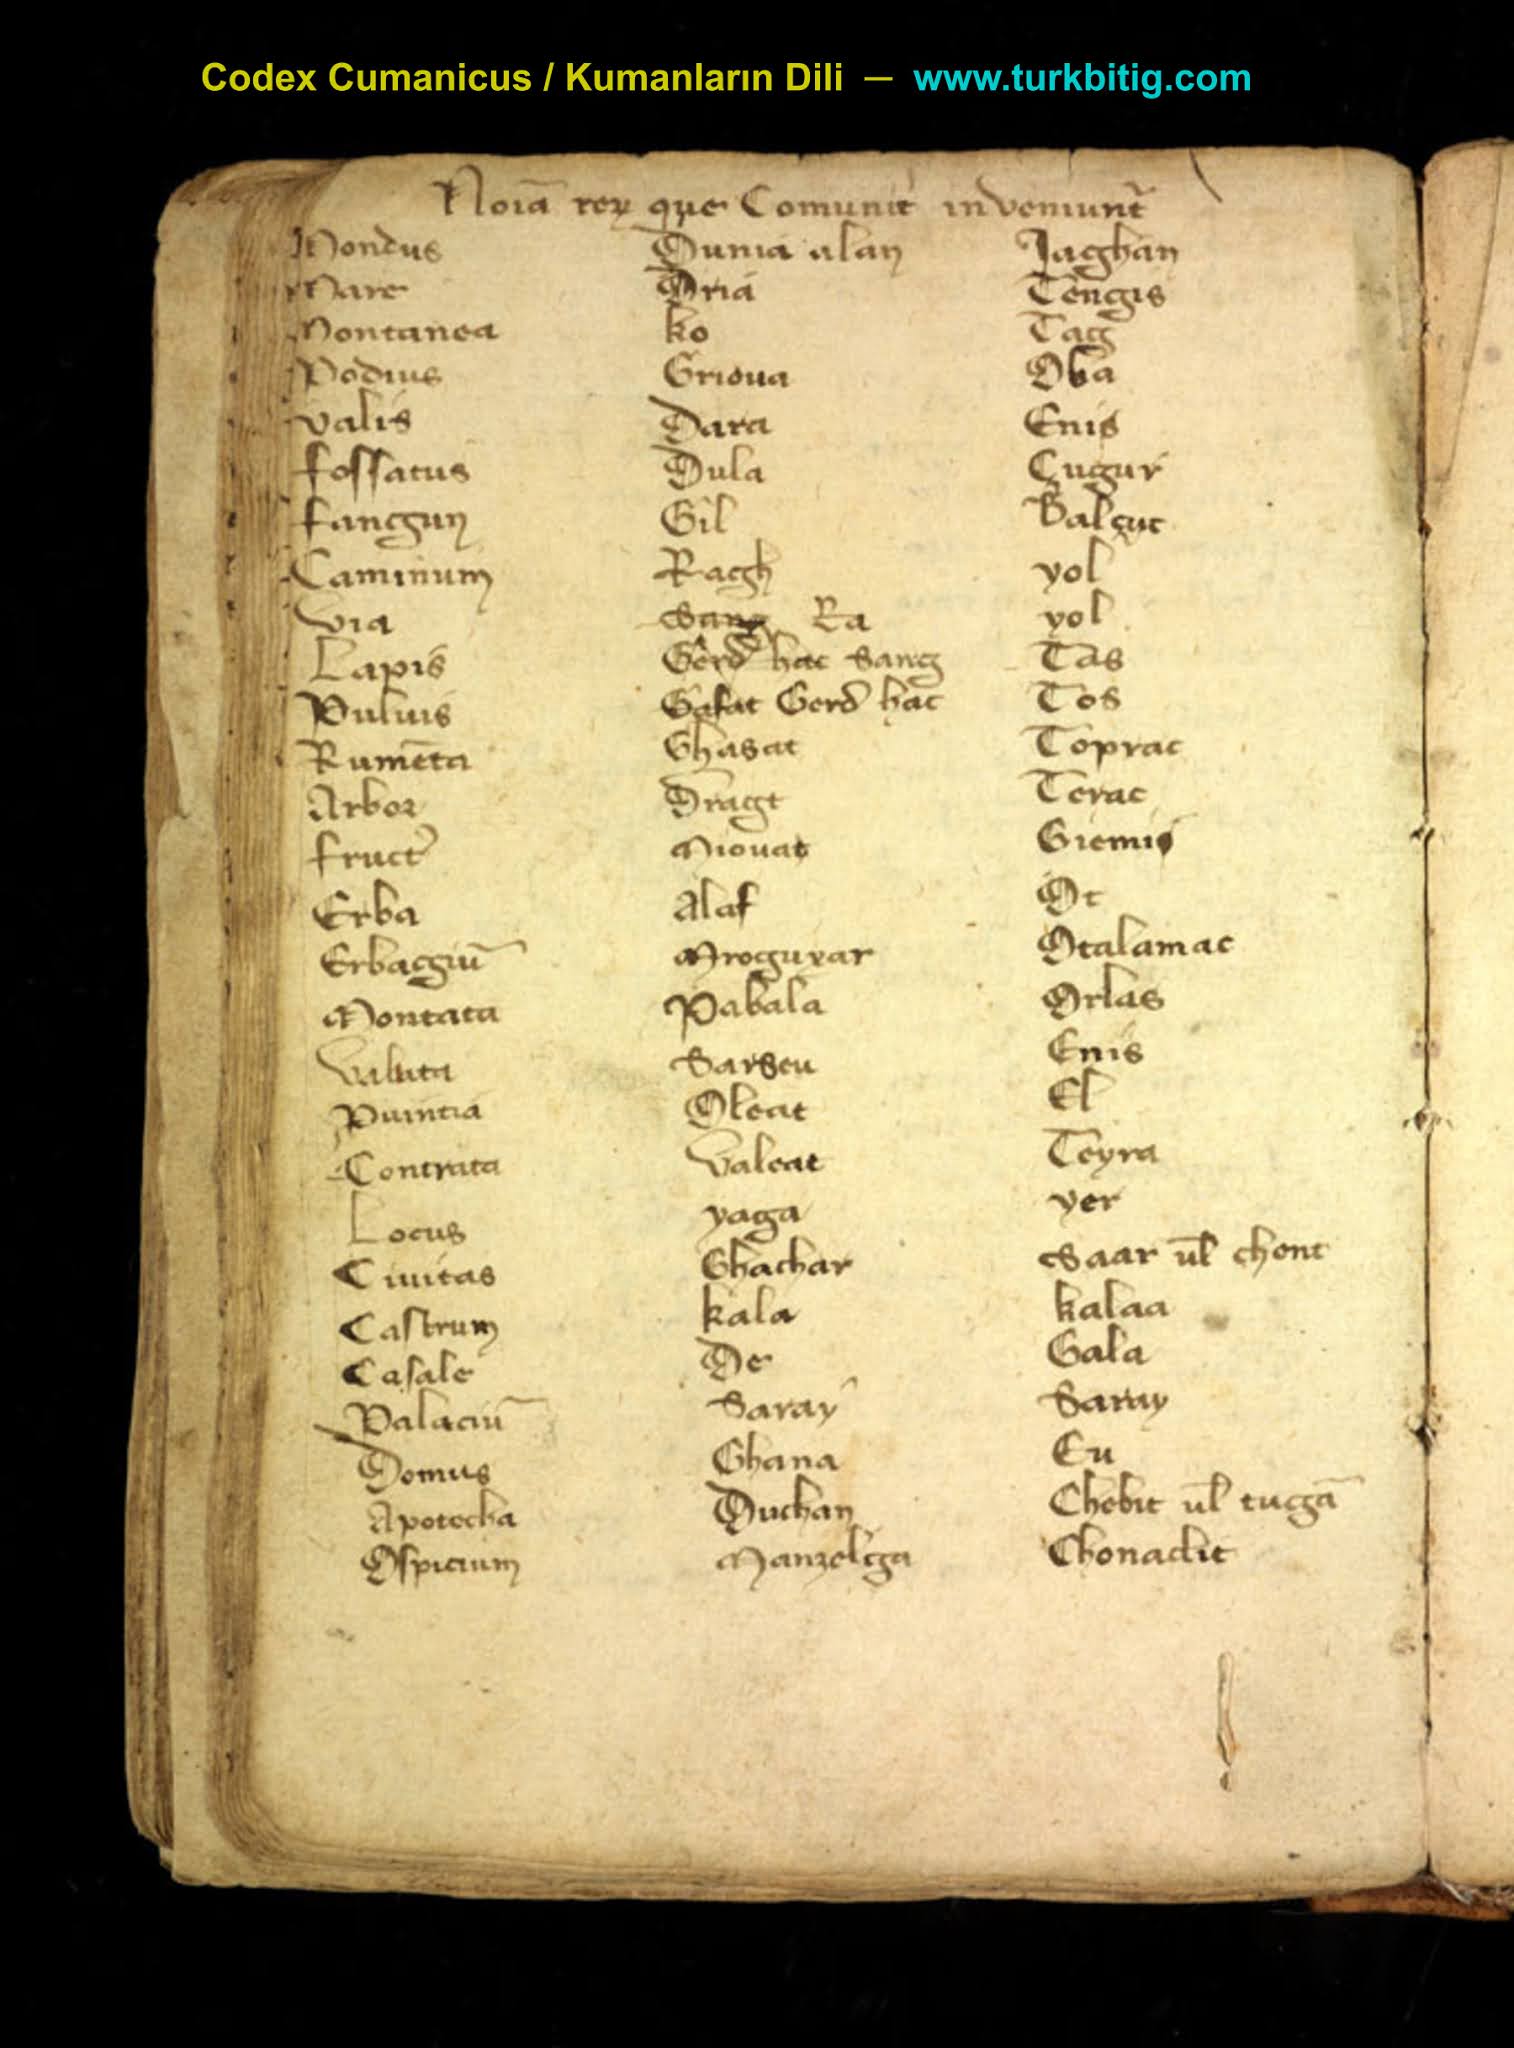 Codex Cumanicus / Kumanların Dili — www.turkbitig.com
Noiā reꝝ que Comunit̄ inveniunt̄
Mondus Dunia alan Jaghan
Mare Dria Tengis
Montanea ko Tag
Podius Grioua Oba
valis Dara Enis
fossatus Dula Cugur
fangun Gil Balçuc
Caminum Ragh yol
via Ra yol
Lapis Gerd hac Sang Tas
Puluis Gasat Gerd hac Tos
Rumēta Ghasat Toprac
Arbor Dragt Terac
fruct' Miouat Giemis
Erba Alaf Ot
Erbagiū Mroguxar Otalamac
Montata Pabala Orlas
Valuta Sarseu Enis
Puintia Oleat El
Contrata Valeat Teyra
Locus yaga yer
Ciuitas Ghachar Saar ul̄ chent
Castrum kala kalaa
Casale De Gala
Palaciū Saray Saray
Domus Ghana Eu
Apotecha Duchan Chebit ul̄ tugā
Ospicium Manzelga Chonaclic